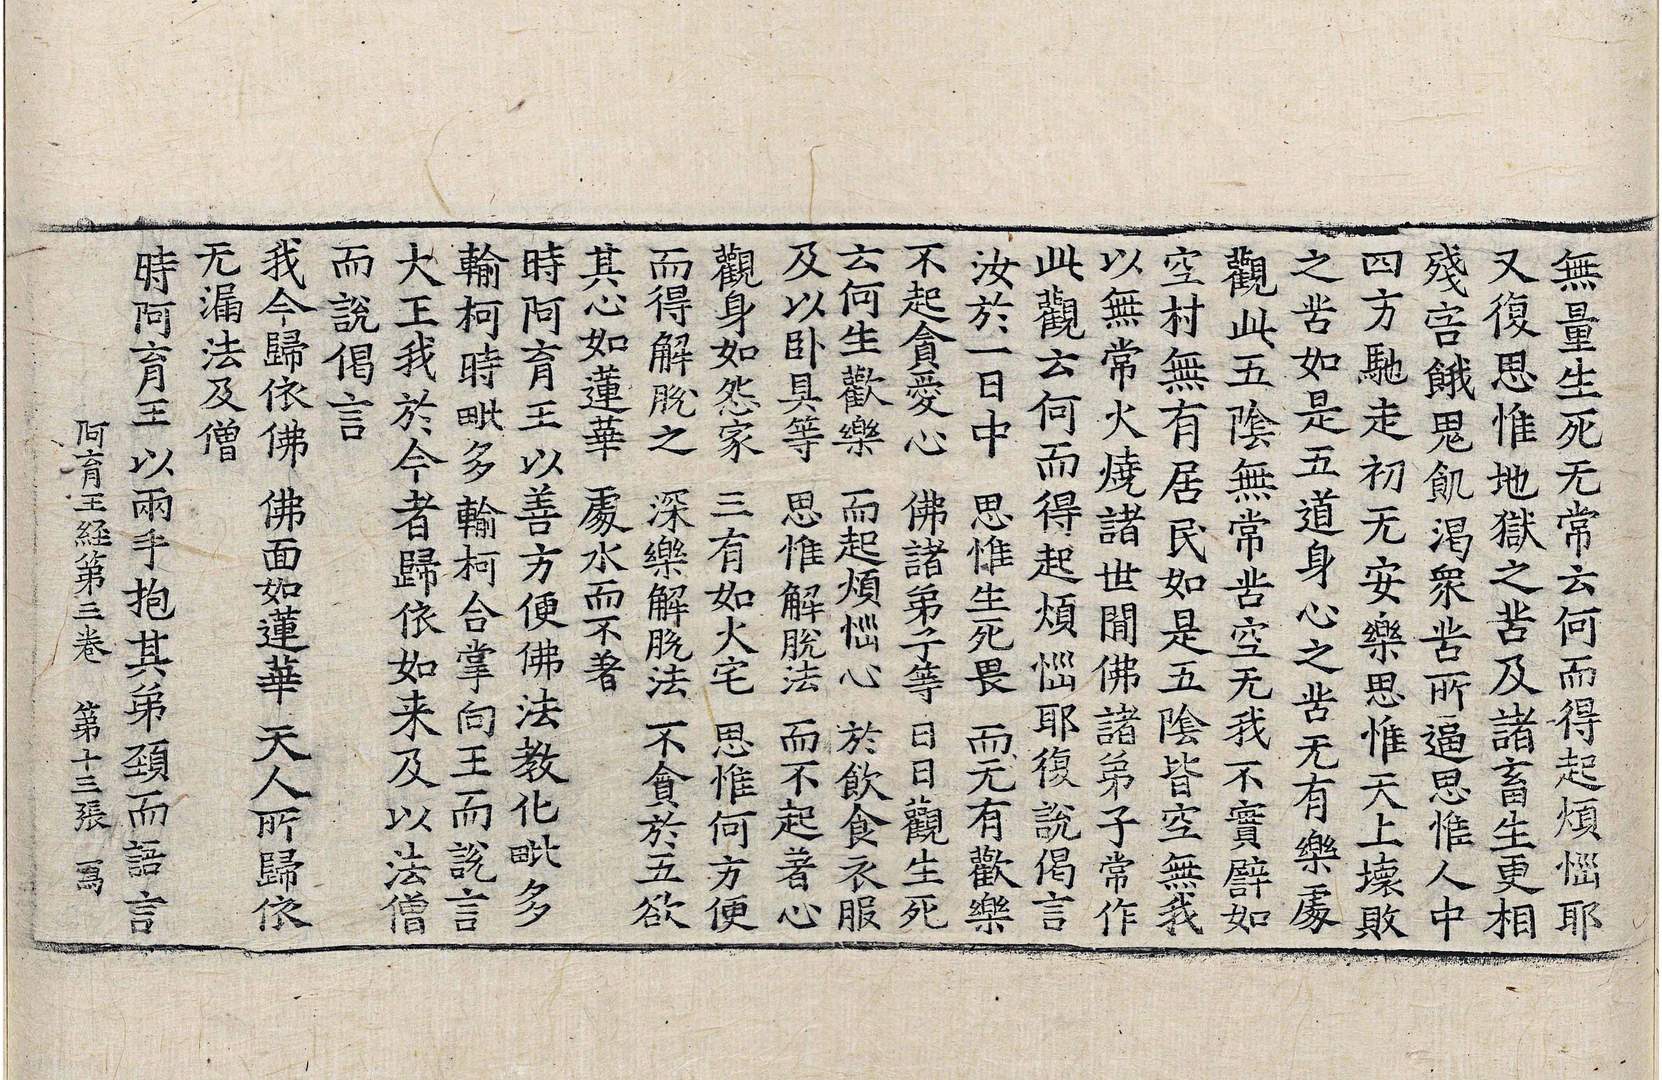 無量生死无常云何而得起煩惱耶
又復思惟地獄之苦及諸畜生更相
殘害餓鬼飢渴衆苦所逼思惟人中
四方馳走初无安樂思惟天上壞敗
之苦如是五道身心之苦无有樂處
觀此五陰無常苦空无我不實譬如
空村無有居民如是五陰皆空無我
以無常火燒諸世間佛諸弟子常作
此觀云何而得起煩惱耶復說偈言
汝於一日中　思惟生死畏　而无有歡樂
不起貪愛心　佛諸弟子等　日日觀生死
云何生歡樂　而起煩惱心　於飲食衣服
及以卧具等　思惟解脫法　而不起著心
觀身如怨家　三有如火宅　思惟何方便
而得解脫之　深樂解脫法　不貪於五欲
其心如蓮華　處水而不著
時阿育王以善方便佛法教化毗多
輸柯時毗多輸柯合掌向王而說言
大王我於今者歸依如来及以法僧
而說偈言
我今歸依佛　佛面如蓮華　天人所歸依
无漏法及僧
時阿育王以兩手抱其弟頸而語言
阿育王経第三卷　第十三張　寫